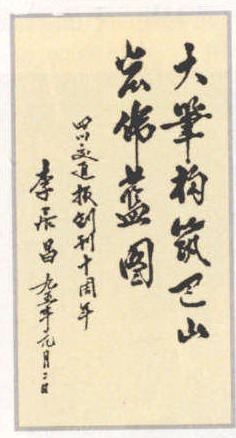 大筆构筑巴山
宏偉藍图
四川交通报创刊十周年
李居昌 九五年元月二日